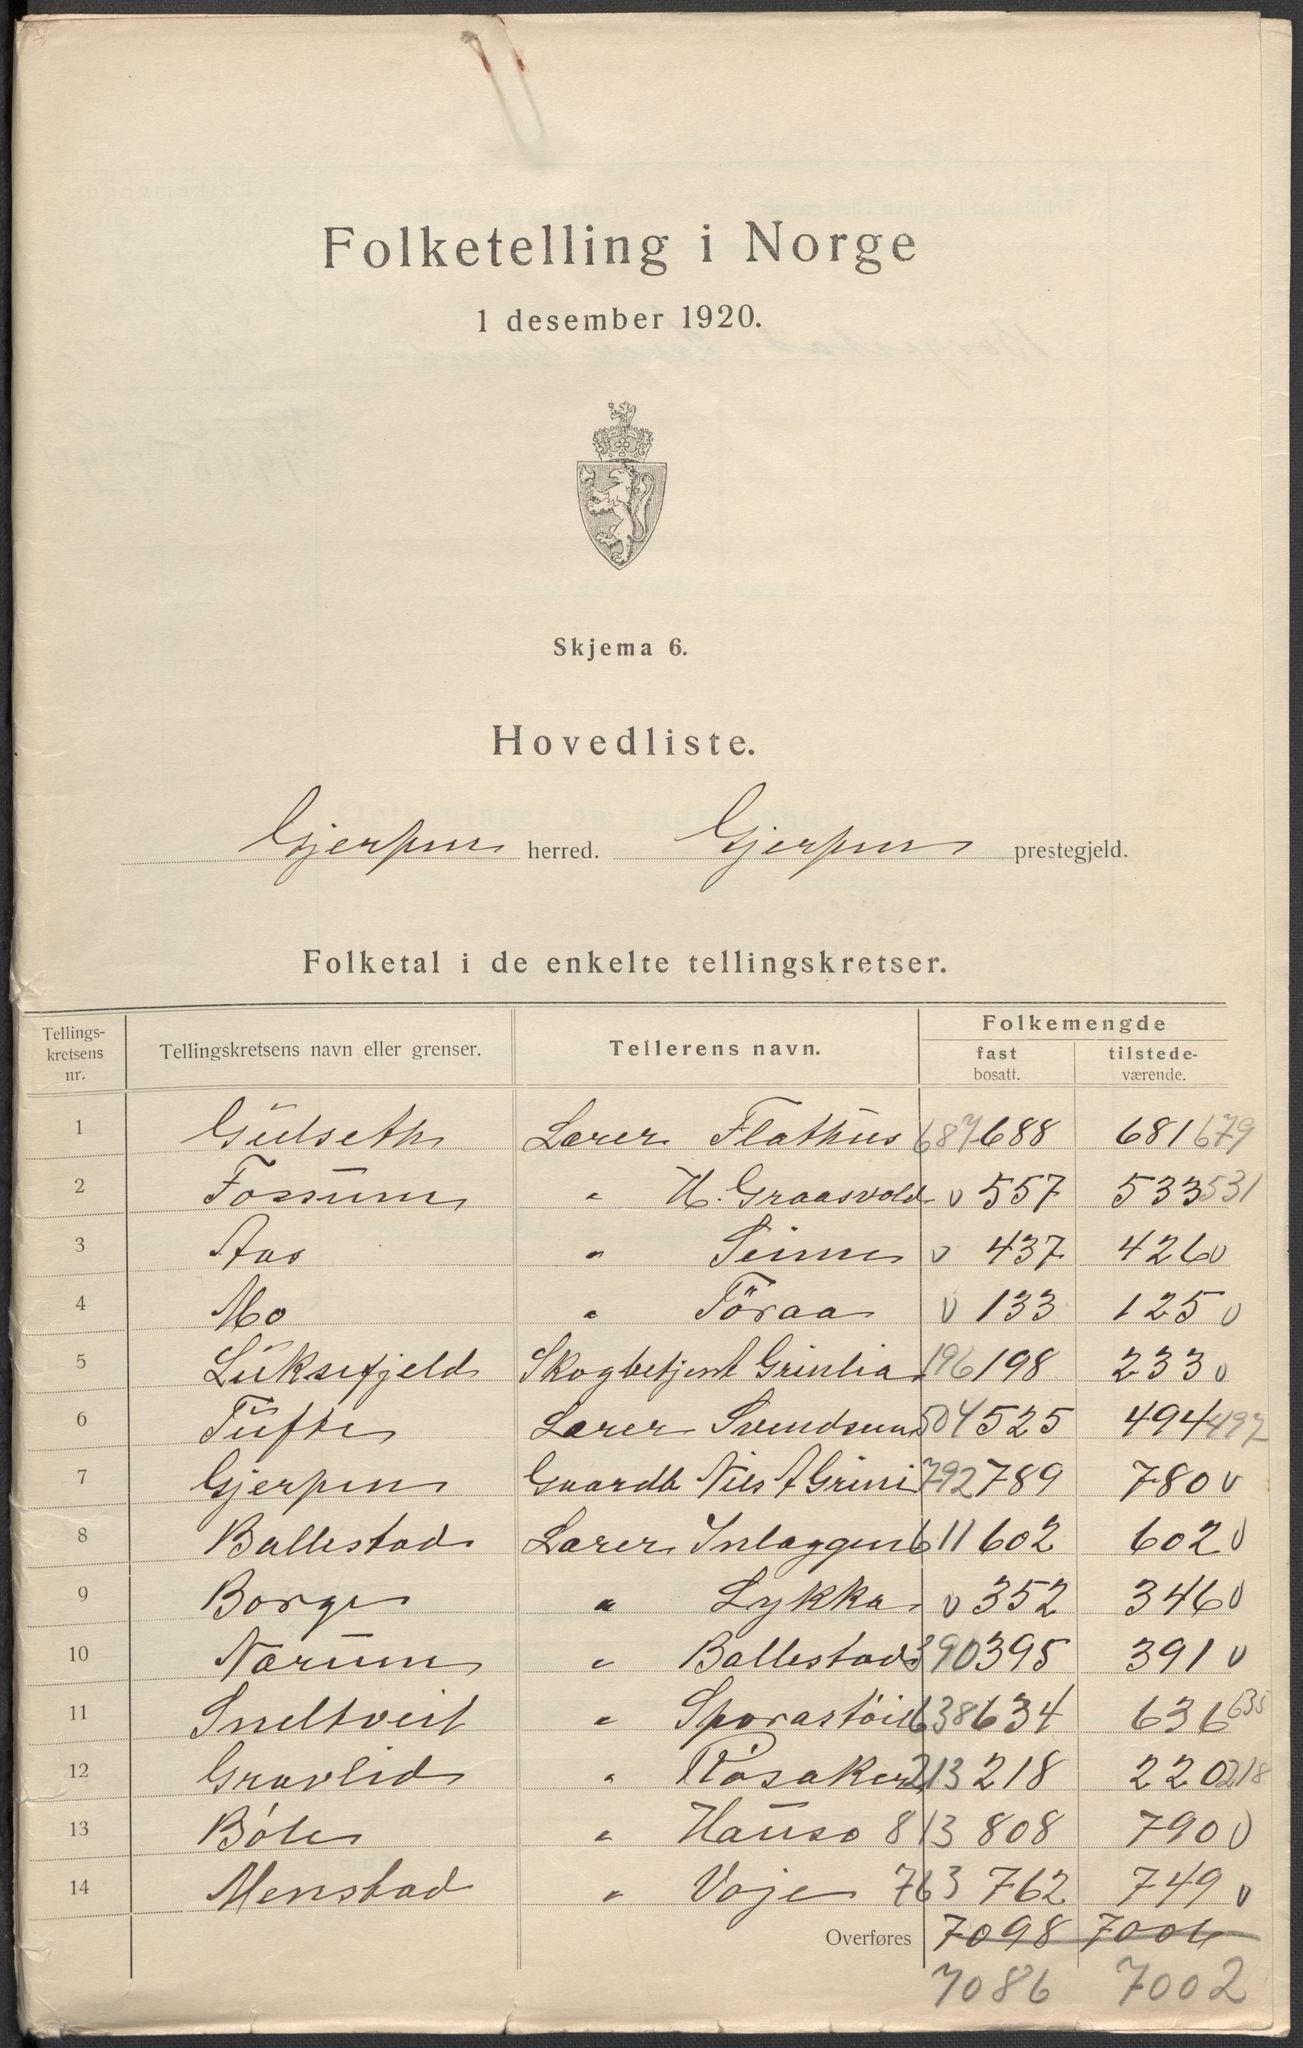 Folketelling i Norge
1 desember 1920.
Skjema 6.
Hovedliste.
Gjerpen herred. Gjerpen prestegjeld.
Folketal i de enkelte tellingskretser.
Tellings-
kretsens
nr.
Tellingskretsens navn eller grenser.
Tellerens navn.
Folkemengde
fast
bosatt.
tilstede-
værende.
1 Gulseth Lærer Flathus 687 688 681 679
2 Fossum " H. Graasvold v 557 533 531
3 Aas " Seime v 437 426 v
4 Mo " Föraa v 133 125 v
5 Luksefjeld Skogbetjent Grinlia 196 198 233 v
6 Tufte Lærer Svendsen 504 525 494 497
7 Gjerpen Gaardb Nils A Grini 792 789 780 v
8 Ballestad Lærer 611 602 602 v
9 Borge " Lykka v 352 346 v
10 Nærum " Ballestad 390 395 391 v
11 Sneltveit " Sporastöil 638 634 636 635
12 Gravlid " Råsaker 213 218 220 218
13 Böle " Hauso 813 808 790 v
14 Menstad " Voje 763 762 749 v
Overføres 7098 7006
7086 7002